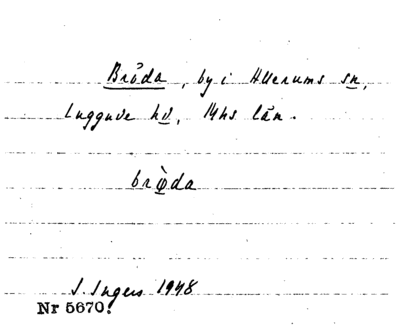 Bröda, by i Allerums sn,
Luggude hd, Mhs län.
brø̀da
I. Ingers 1948
Nr 5670.